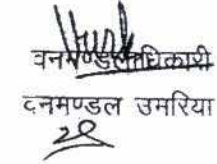 वनमण्डलाधिकारी
वनमण्डल उमरिया